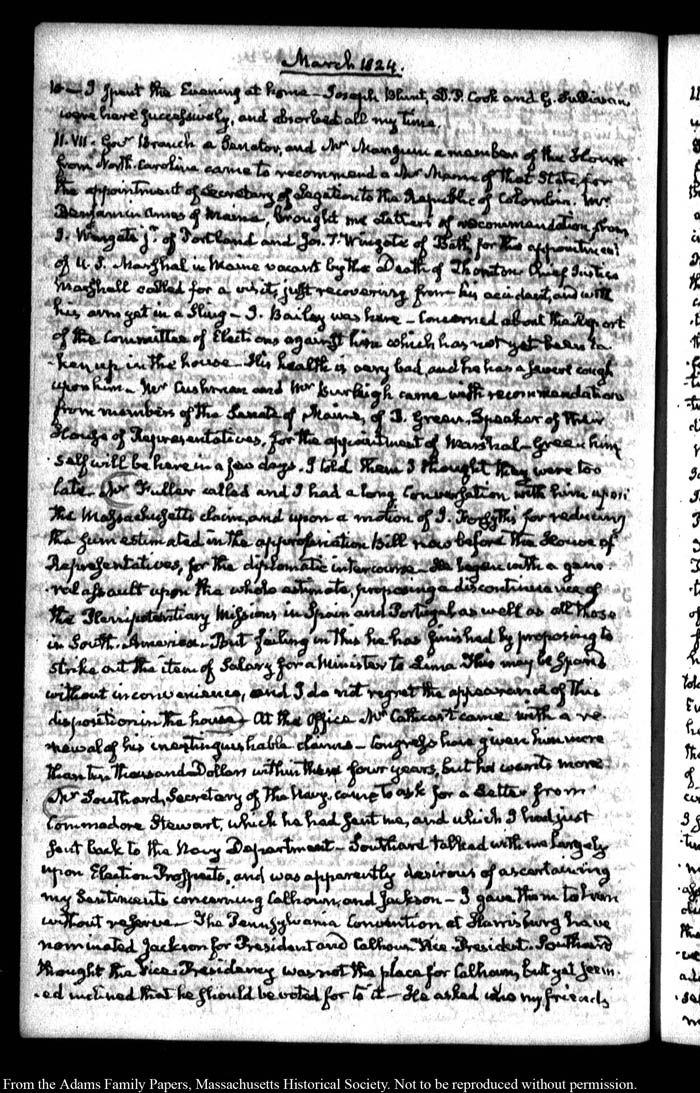 March 1824.
10 — I spent the Evening at home — Joseph Blunt, D. P. Cook and G. Sullivan
were here successively, and absorbed all my time.
11. VII. Govr. Branch a Senator, and Mr. Mangum a member of the House
from North-Carolina came to recommend a Mr. Mann of that State for
the appointment of Secretary of Legation to the Republic of Colombia. Mr.
Benjamin Ames of Maine, brought me Letters of recommendation from
J. Wingate jr. of Portland and Jos. F. Wingate of Bath for the appointment
of U. S. Marshal in Maine vacant by the Death of Thornton Chief Justice
Marshall called for a visit, just recovering from his accident, and with
his arm yet in a sling — J. Bailey was here — Concerned about the Report
of the Committee of Elections against him which has not yet been ta-
ken up in the house — His health is very bad and he has a severe cough
upon him. Mr. Cushman and Mr. Burleigh came with recommendations
from members of the Senate of Maine, of B. Green, Speaker of their
House of Representatives, for the appointment of Marshal — Green him
self will be here in a few days. I told them I thought they were too
late. Mr. Fuller called and I had a long Conversation with him upon
the Massachusetts claim, and upon a motion of J. Forsyth's for reducing
the sum estimated in the appropriation Bill now before the House of
Representatives, for the diplomatic intercourse — He began with a gene-
ral assault upon the whole estimate, proposing a discontinuance of
the Plenipotentiary Missions in Spain and Portugal as well as all those
in South-America — But failing in this he has finished by proposing to
strike out the item of Salary for a Minister to Lima. This may be spared
without inconvenience, and I do not regret the appearance of this
disposition in the house — At the Office Mr. Cathcart came with a re-
newal of his inextinguishable claims — Congress have given him more
than ten thousand Dollars within these four years, but he wants more
Mr. Southard, Secretary of the Navy, came to ask for a Letter from
Commodore Stewart, which he had sent me, and which I had just
sent back to the Navy Department — Southard talked with me largely
upon Election Prospects, and was apparently desirous of ascertaining
my Sentiments concerning Calhoun, and Jackson — I gave them to him
without reserve — The Pennsylvania Convention at Harrisburg have
nominated Jackson for President and Calhoun Vice-President. Southard
thought the Vice-Presidency was not the place for Calhoun, but yet seem-
ed inclined that he should be voted for to it — He asked who my friends
From the Adams Family Papers, Massachusetts Historical Society. Not to be reproduced without permission.